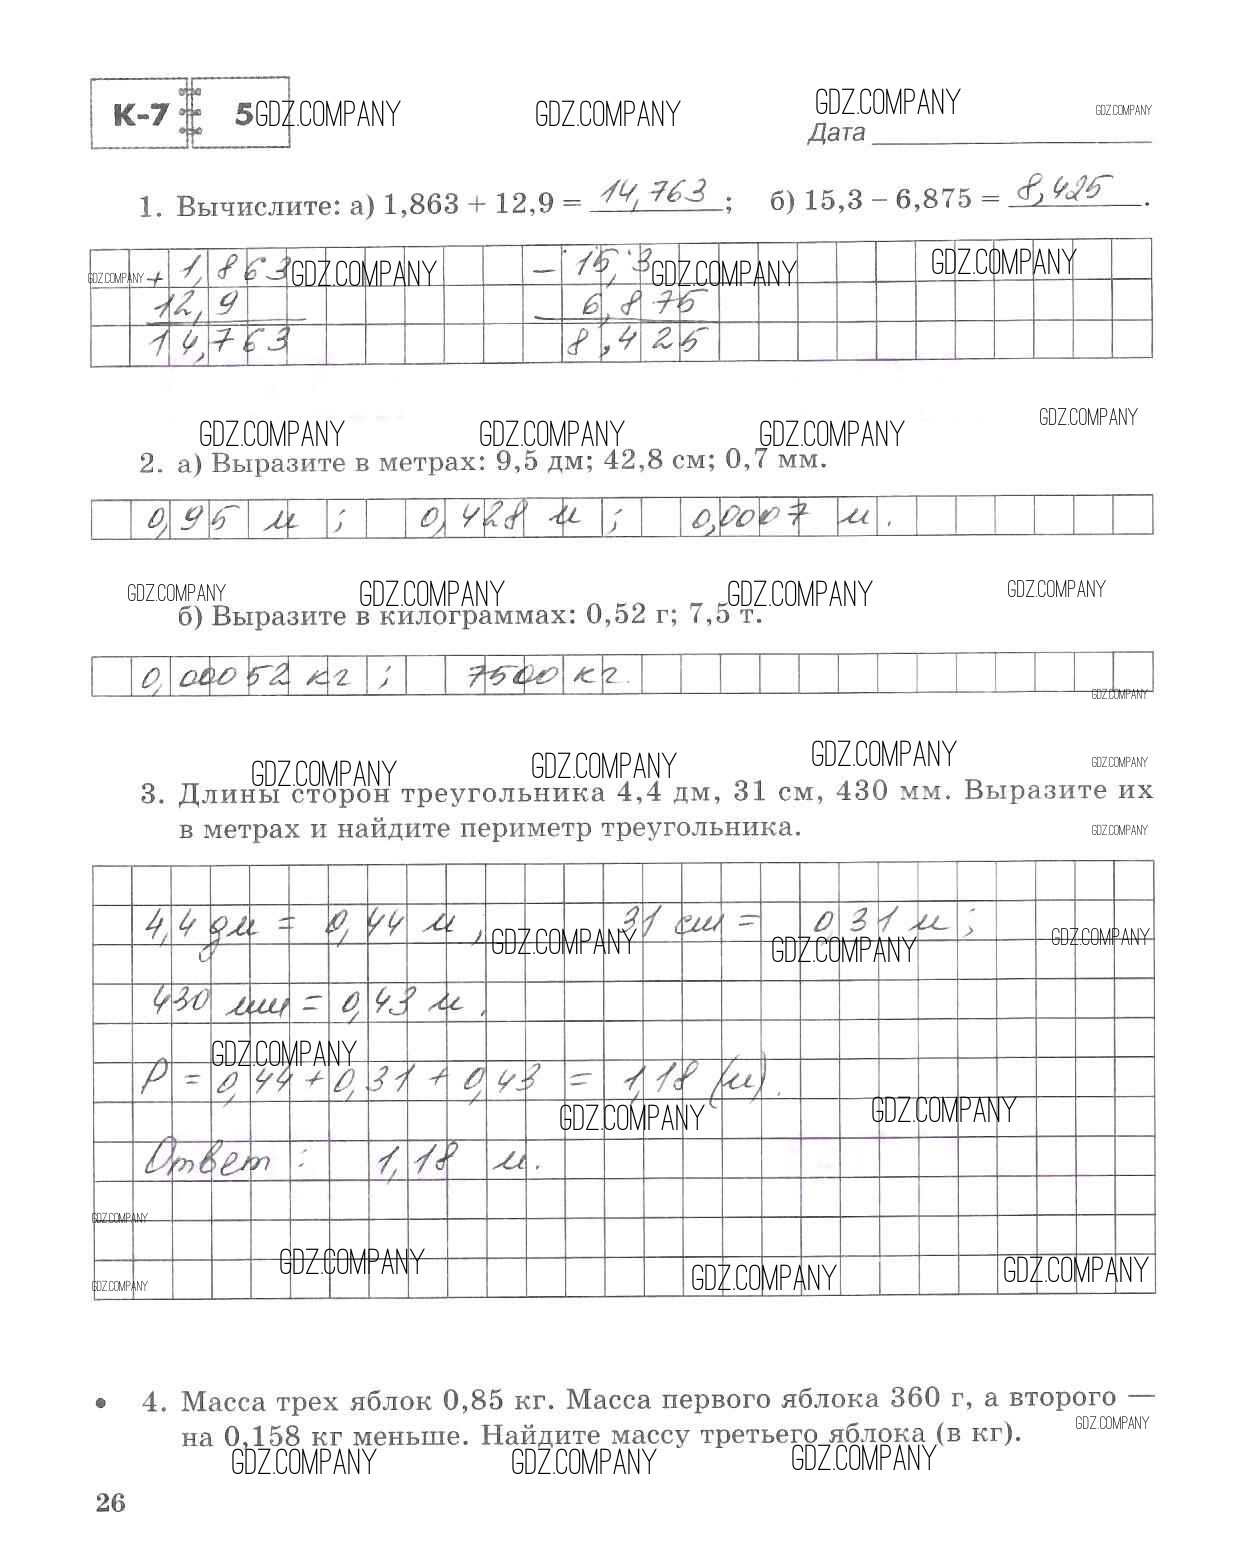 К-7 5 GDZ.COMPANY GDZ.COMPANY GDZ.COMPANY GDZ.COMPANY
Дата
1. Вычислите: а) 1,863 + 12,9 = 14,763; б) 15,3 – 6,875 = 8,425.
GDZ.COMPANY + 1,863 GDZ.COMPANY – 15,3 GDZ.COMPANY GDZ.COMPANY
12,9 6,875
14,763 8,425
GDZ.COMPANY GDZ.COMPANY GDZ.COMPANY GDZ.COMPANY
2. а) Выразите в метрах: 9,5 дм; 42,8 см; 0,7 мм.
0,95 м; 0,428 м; 0,0007 м.
GDZ.COMPANY GDZ.COMPANY GDZ.COMPANY GDZ.COMPANY
б) Выразите в килограммах: 0,52 г; 7,5 т.
0,00052 кг; 7500 кг.
GDZ.COMPANY
GDZ.COMPANY GDZ.COMPANY GDZ.COMPANY GDZ.COMPANY
3. Длины сторон треугольника 4,4 дм, 31 см, 430 мм. Выразите их
в метрах и найдите периметр треугольника.
GDZ.COMPANY
4,4 дм = 0,44 м, 31 см = 0,31 м;
GDZ.COMPANY GDZ.COMPANY GDZ.COMPANY
430 мм = 0,43 м.
GDZ.COMPANY
P = 0,44 + 0,31 + 0,43 = 1,18 (м).
GDZ.COMPANY GDZ.COMPANY
Ответ: 1,18 м.
GDZ.COMPANY
GDZ.COMPANY GDZ.COMPANY GDZ.COMPANY
GDZ.COMPANY
• 4. Масса трех яблок 0,85 кг. Масса первого яблока 360 г, а второго —
GDZ.COMPANY
на 0,158 кг меньше. Найдите массу третьего яблока (в кг).
GDZ.COMPANY GDZ.COMPANY GDZ.COMPANY
26